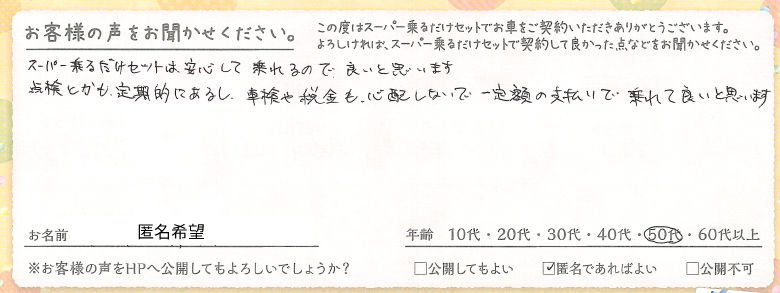 お客様の声をお聞かせください。
この度はスーパー乗るだけセットでお車をご契約いただきありがとうございます。
よろしければ、スーパー乗るだけセットで契約して良かった点などをお聞かせください。
スーパー乗るだけセットは、安心して乗れるので、良いと思います
点検とかも、定期的にあるし、車検や税金も、心配しないで一定額の支払いで乗れて良いと思います
お名前 匿名希望
年齢 10代・20代・30代・40代・50代・60代以上
※お客様の声をHPへ公開してもよろしいでしょうか？ □公開してもよい ☑匿名であればよい □公開不可